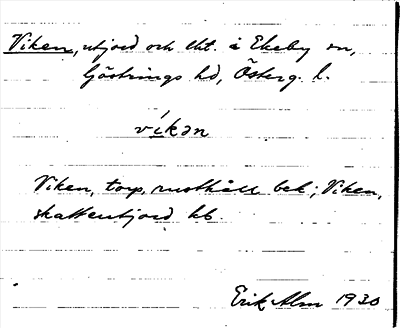 Viken, utjord och lht. å Ekeby sn,
Göstrings hd, Österg. l.
víkan
Viken, torp, rusthåll bek; Viken,
skatteutjord kb.
Erik Alm 1930